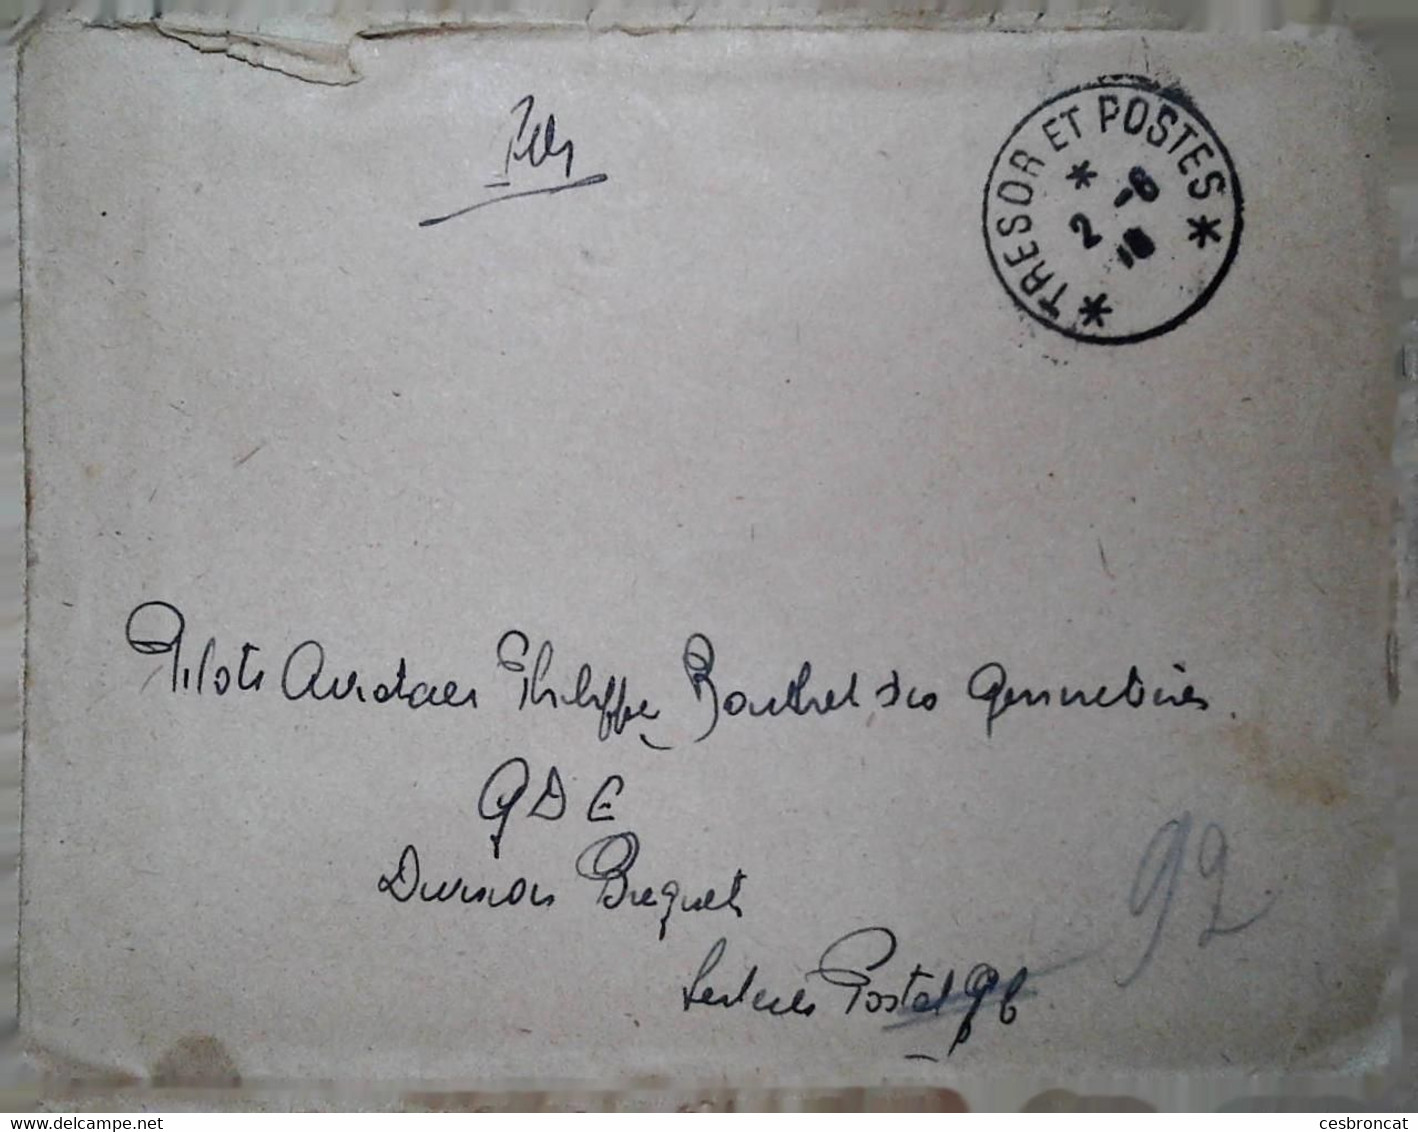 * TRESOR ET POSTES *
*
2 -8
18
Pilote Aviateur Philippe Bouthet des Gennetières
GDE
Division Breguet
Secteur Postal 96
92
delcampe.net
cesbroncat